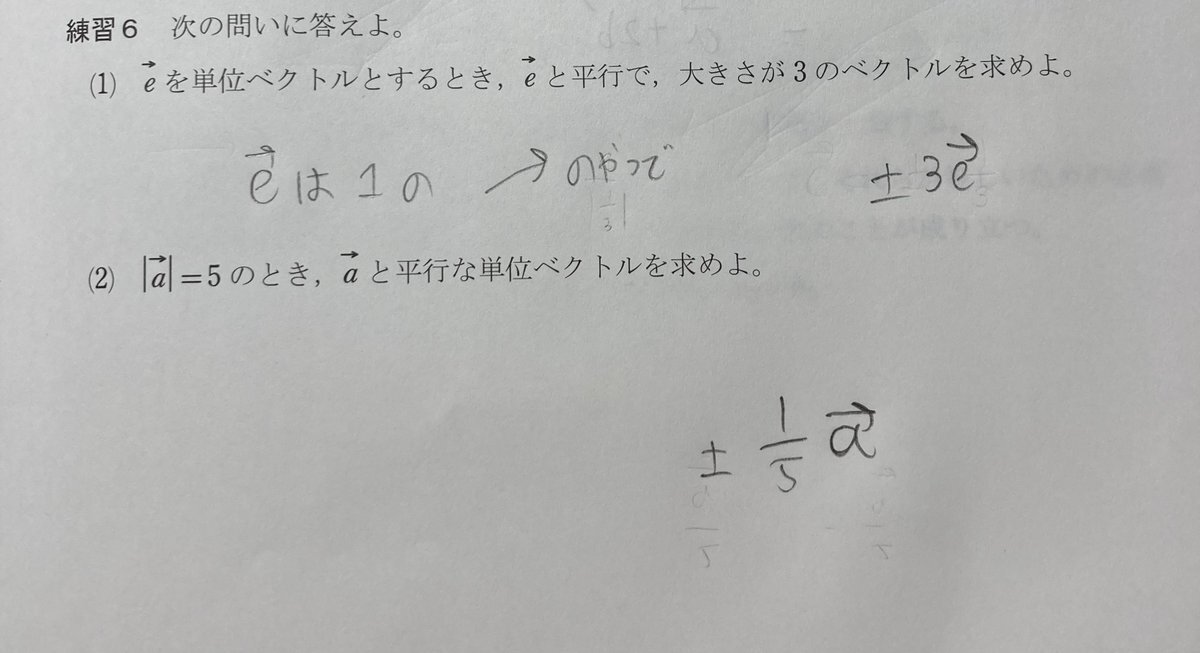 練習6 次の問いに答えよ。
(1) →eを単位ベクトルとするとき，→eと平行で，大きさが3のベクトルを求めよ。
→eは1の ↗のやつで ±3→e
(2) |→a|=5のとき，→aと平行な単位ベクトルを求めよ。
±1/5→a